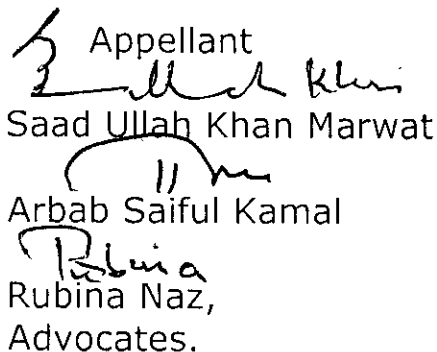 Appellant
Saad Ullah Khan Marwat
Arbab Saiful Kamal
Rubina
Rubina Naz,
Advocates.